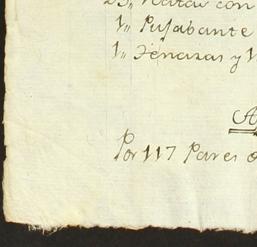 con
1,, Pujabante
1,, Tenazas y 1
A
Por 117 Pares